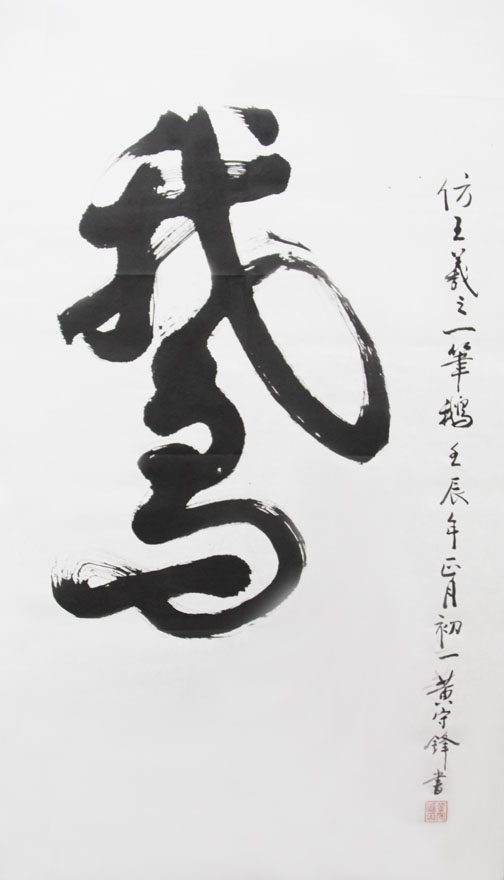 鵞
仿王羲之一筆鵝壬辰年正月初一黄守鋒書